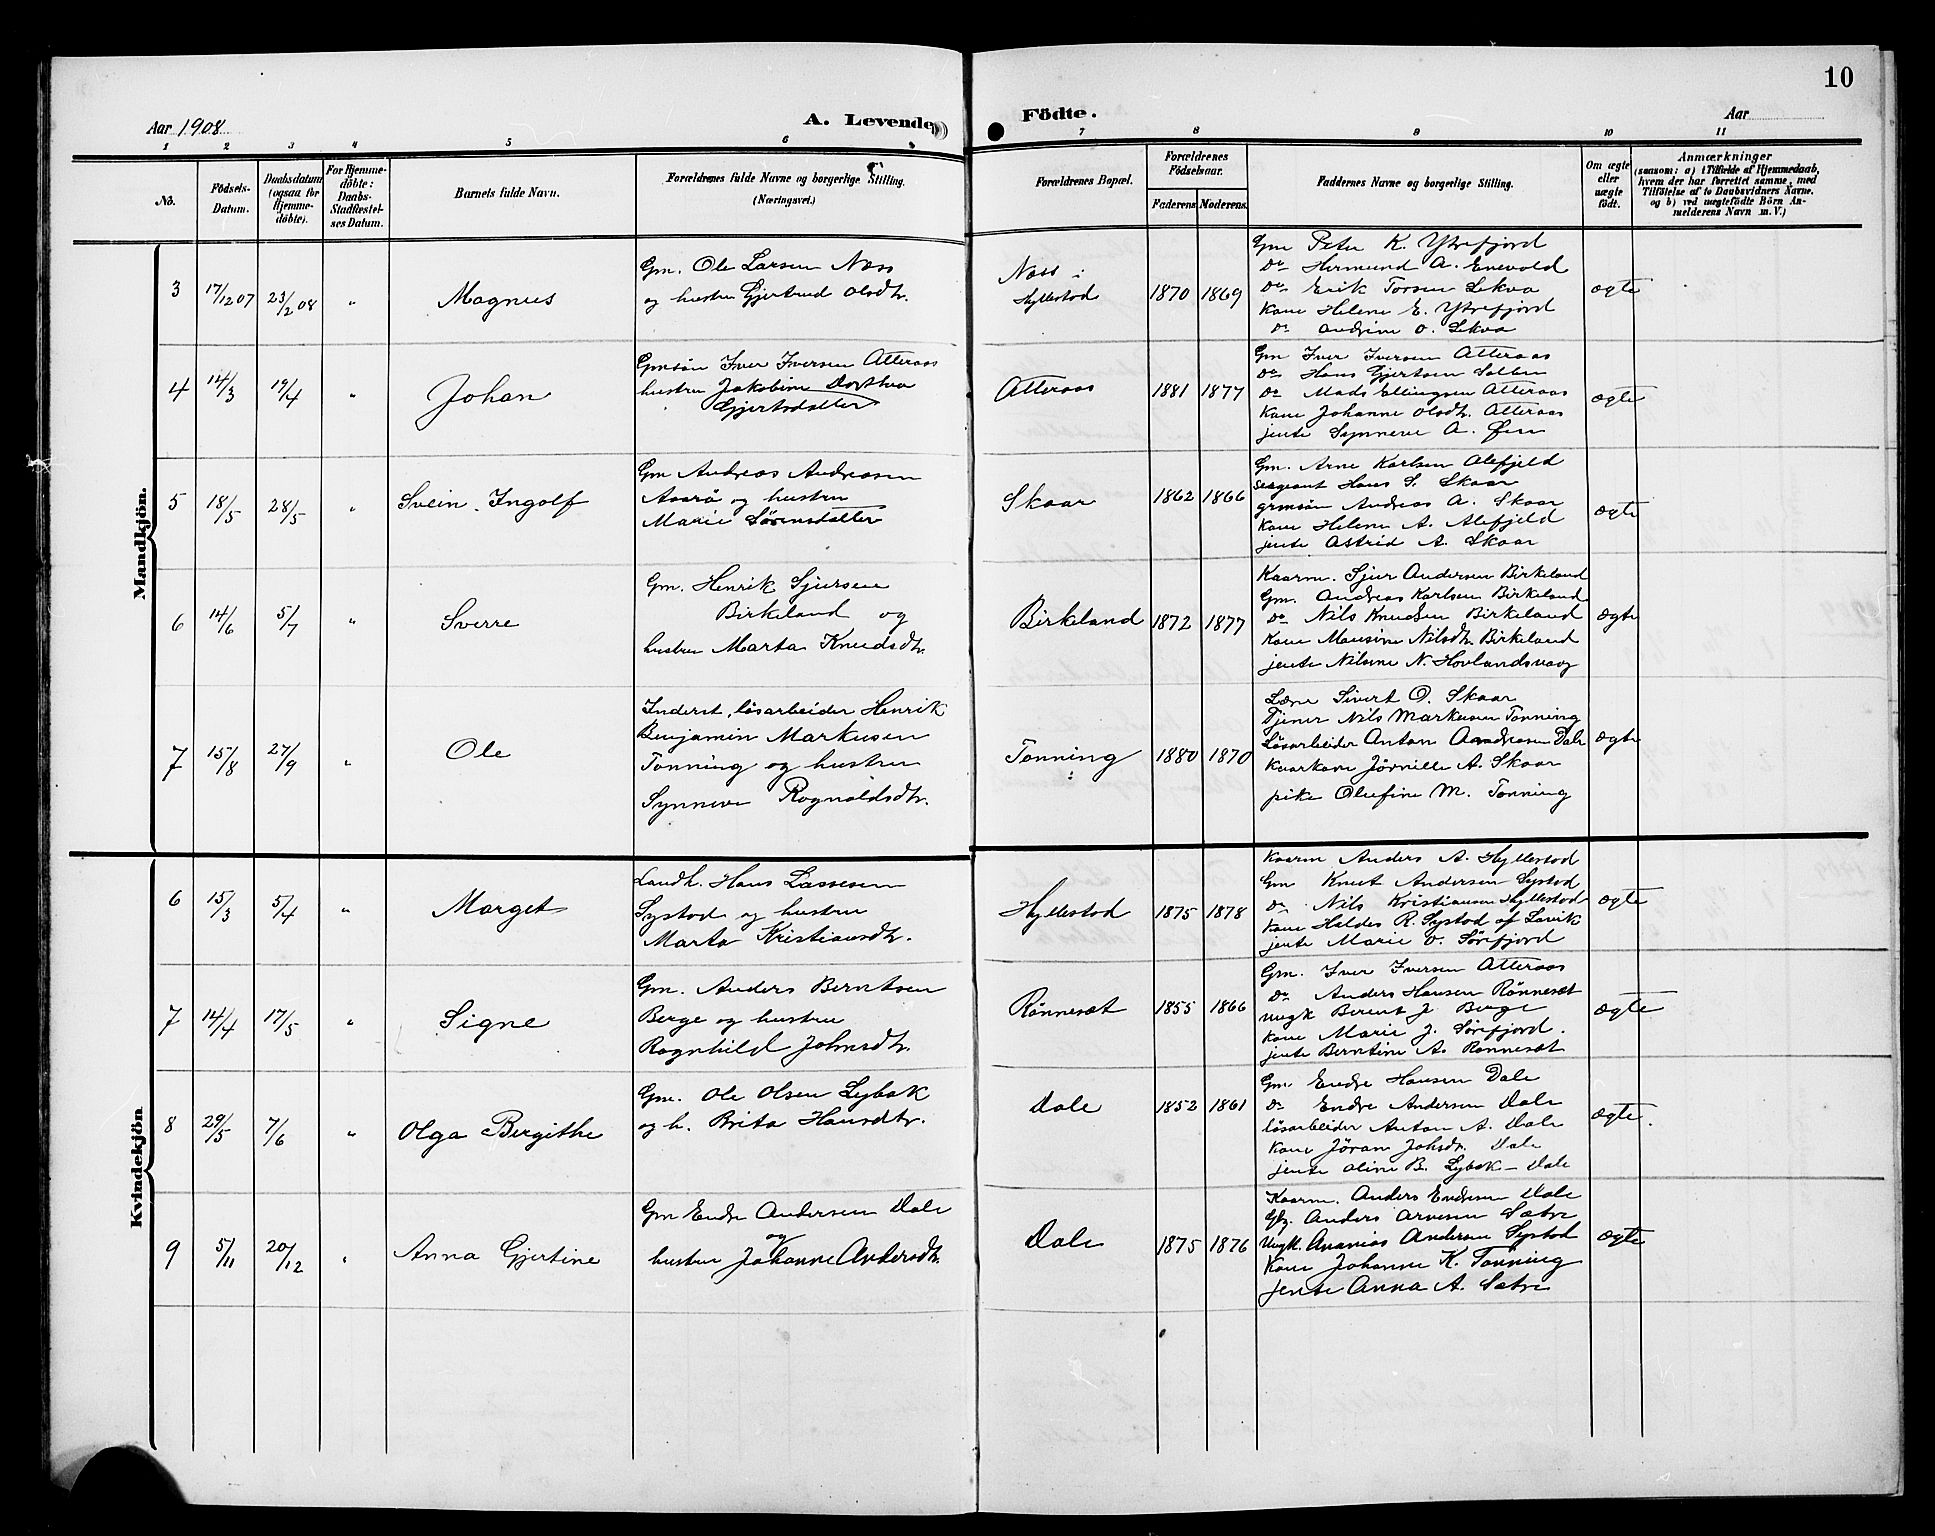 10
Aar 1908
A. Levende
Födte.
Aar
1 2 3 4 5 6 7 8 9 10 11
No.
Födsels-
Datum.
Daabsdatum
(ogsaa for
Hjemme-
döbte).
For Hjemme-
döbte:
Daabs-
Stadfæstel-
ses Datum.
Barnets fulde Navn.
Forældrenes fulde Navne og borgerlige Stilling.
(Næringsvei.)
Forældrenes Bopæl.
Forældrenes
Födselsaar.
Faderens.
Moderens.
Faddernes Navne og borgerlige Stilling.
Om ægte
eller
uægte
födt.
Anmærkninger
(saasom: a) i Tilfælde af Hjemmedaab,
hvem der har forrettet samme, med
Tilföielse af to Daabsvidners Navne.
og b) ved uægtefödte Börn An-
melderens Navn m. V.)
Mandkjön.
3 17/12 07 23/2 08 " Magnus
Gm. Ole Larsen Næss
og hustru Gjertrud Olsdtr.
Næss i
Hyllestad
1870 1869
Gm Peter K. Ytrefjord
Do Hermund A. Enevold
Do Erik Torsen Lekva
Kone Helene E. Ytrefjord
Do Andrine O. Lekva
ægte
4 14/3 19/4 " Johan
Gmsön Iver Iversen Atteraas
hustru Jakobine Dorthea
Gjertsdatter
Atteraas
1881 1877
Gm Iver Iversen Atteraas
Do Hans Gjertsen Solben
Do Mads Ellingsen Atteraas
Kone Johanne Olsdtr. Atteraas
jente Synneve A. Øen
ægte
5 18/5 28/5 " Svein Ingolf
Gm Andreas Andreasen
Aaarö og hustru
Marie Sørensdatter
Skaar
1862 1866
Gm. Arne Karlsen Alefjeld
Sergeant Hans S. Skaar
grmsön Andreas A. Skaar
Kone Helene A. Alefjeld
jente Astrid A. Skaar
ægte
6 14/6 5/7 " Sverre
Gm. Henrik Sjursen
Birkeland og
hustru Marta Knudsdtr.
Birkeland
1872 1877
Kaarm. Sjur Andersen Birkeland
Gm. Andreas Karlsen Birkeland
Do Nils Knudsen Birkeland
Kone Mansine Nilsdtr. Birkeland
jente Nilsine N. Hovlandsvaag
ægte
7 15/8 27/9 " Ole
Inderst, lösarbeider Henrik
Benjamin Markusen
Tonning og hustru
Synneve Rognaldsdtr.
Tonning
1880 1870
Sivert O. Skaar
Tjener Nils Markusen Tonning
Lösarbeider Anton Andreasen Dale
Kaarkone Jörnille A. Skaar
pike Olufine M. Tonning
ægte
Kvindekjön.
6 15/3 5/4 " Marget
Landh. Hans Lassesen
Systad og hustru
Marta Kristiansdtr.
Hyllestad
1875 1878
Kaarm Anders A. Hyllestad
Gm Knut Andersen Systad
Do Nils Kristiansen Hyllestad
Kone Haldis R. Systad af Lavik
jente Marie O. Sörefjord
ægte
7 14/4 17/5 " Signe
Gm. Anders Berntsen
Berge og hustru
Ragnhild Johnsdtr.
Rönneset
1855 1866
Gm. Iver Iversen Atteraas
Do Anders Hansen Rönneset
Ungk Berent J Berge
Kone Marie J. Sörefjord.
jente Berntine A. Rönneset
ægte
8 29/5 7/6 " Olga Bergithe
Gm. Ole Olsen Lybæk
og h. Brita Hansdtr.
Dale
1852 1861
Gm. Endre Hansen Dale
Do Endre Andersen Dale
lösarbeider Anton A. Dale
Kone Jöran Johsdr. Dale
jente Oline B. Lybæk – Dale
ægte.
9 5/11 20/12 " Anna Gjertine
Gm Endre Andersen Dale
og
hustru Johanne Andersdtr.
Dale
1875 1876
Kaarm. Anders Endresen Dale
Anders Arnesen Sætre
Ungk. Ananias Andersen Systad
Kone Johanne K. Tonning
Jente Anna A. Sætre
ægte